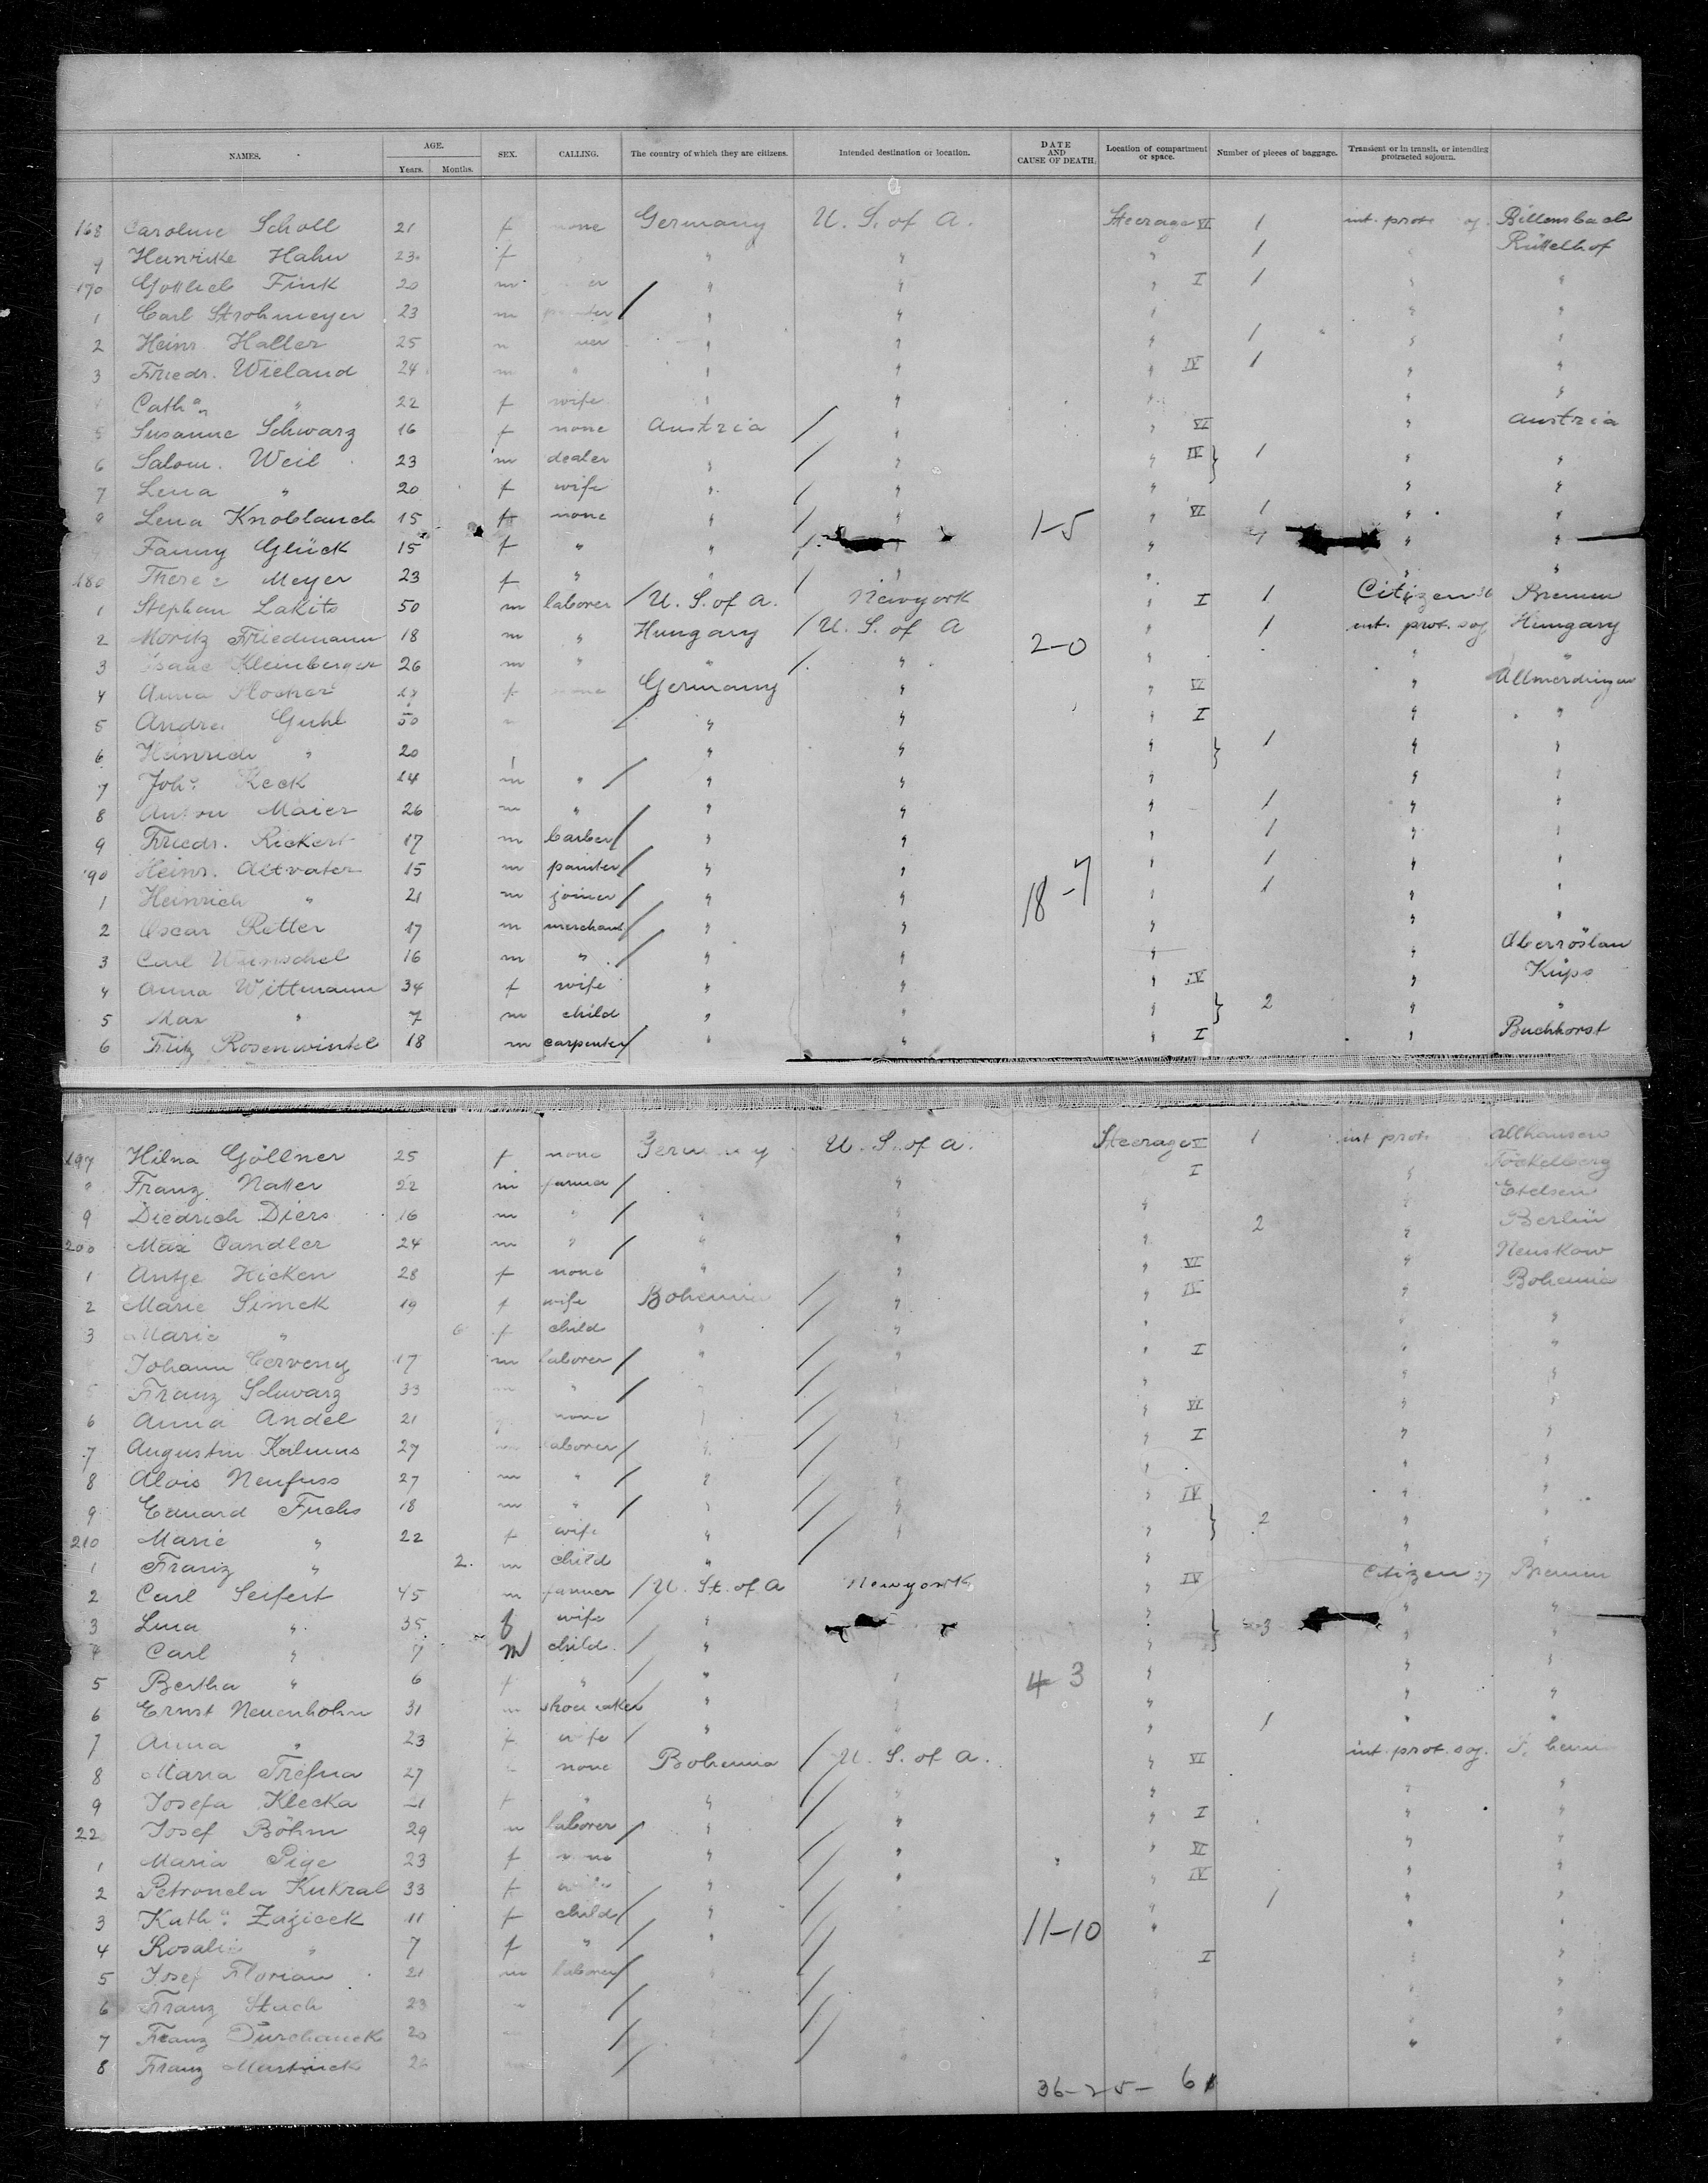 NAMES. AGE. Years. Months. SEX. CALLING. The country of which they are citizens. Intended destination or location. DATE AND CAUSE OF DEATH. Location of compartment or space. Number of pieces of baggage. Transient or in transit, or intending protracted sojourn.
168 Caroline Scholl 21 f none Germany U. S. of A. Steerage VI 1 int. prot. soj. Billensbach
9 Henrike Hahn 23 f " " " 1 Rüttelhof
170 Gottlieb Fink 20 m " " " I 1 " "
1 Carl Strohmeyer 23 m painter " " " " "
2 Heinr. Haller 25 m " " " 1 " "
3 Friedr. Wieland 24 m " " " " IV 1 " "
Cath.a " 22 f wife " " " " "
5 Susanne Schwarz 16 f none Austria " " VI " Austria
6 Salom. Weil 23 m dealer " " " IV 1 " "
7 Lena " 20 f wife " " " " "
8 Lena Knoblauch 15 f none " " 1-5 " VI 1 " "
Fanny Glück 15 f " " " " " "
180 Therese Meyer 23 f " " " " " "
1 Stephan Lakits 50 m laborer U. S. of A. Newyork " I 1 Citizen 36 Bremen
2 Moritz Friedmann 18 m " Hungary U. S. of A 2-0 " 1 int. prot. soj Hungary
3 Isaac Kleinberger 26 m " " " " " "
4 Anna f none Germany " " VI " Allmerdingen
5 Andre Guhl 50 m " " " I " "
6 Heinrich " 20 " " " 1 " "
7 Joh.s Keck 14 m " " " " " "
8 Anton Maier 26 m " " " " 1 " "
9 Friedr. Rickert 17 m barber " " " 1 " "
190 Heinr. Altvater 15 m painter " " 18-7 " 1 " "
1 Heinrich " 21 m joiner " " " 1 " "
2 Oscar Retter 17 m merchant " " " " "
3 Carl Wunschel 16 m " " " " " Oberröslau
4 Anna Wittmann 34 f wife " " " IV " Küps
5 Max " 7 m child " " " 2 " "
6 Fritz Rosenwinkel 18 m carpenter " " " I " Buchhorst
197 Hilna Göllner 25 f none Germany U. S. of A. Steerage V 1 int prot. Allhausen
Franz Natter 22 m farmer " I " Föckelberg
9 Diedrich Diers 16 m " " " " " Etelsen
200 Max Candler 24 m " " " " 2 " Berlin
1 Antje Hicken 28 f none " " " VI " Neuskow
2 Marie Simek 19 f wife Bohemia " " IV " Bohemia
3 Marie " 6 f child " " " " "
Johann Cerveny 17 m laborer " " " I " "
5 Franz Schwarz 33 m " " " " " "
6 Anna Andel 21 none " " " VI " "
7 Augustin Kalmus 27 laborer " " " I " "
8 Alois Neufuss 27 m " " " " " "
9 Eduard Fuchs 18 m " " " " IV " "
210 Marie " 22 f wife " " " 2 " "
1 Franz " 2 m child " " " "
2 Carl Seifert 45 m farmer U. St. of A Newyork " IV Citizen 37 Bremen
3 Lina " 35 f wife " " 3 " "
4 Carl " 7 m child " " " "
5 Bertha " 6 f " " " 4 3 " " "
6 Ernst Neuenhohn 31 m shoemaker " " " " "
7 Anna " 23 f wife " " " 1 " "
8 Maria Trefna 27 none Bohemia U. S. of A. " VI int. prot. soj.
9 Josefa Klecka f " " " " " "
220 Josef Böhm 29 m laborer " " " I " "
1 Maria Pige 23 f none " " " VI " "
2 Petronela Kukral 33 f wife " " " IV " "
3 Kath.a Zajicek 11 f child " " " 1 " "
4 Rosalie " 7 f " " " 11-10 " " "
5 Josef Florian 21 m laborer " " I " "
6 Franz Stuch 23 " "
7 Franz Durchanek 20 " "
8 Franz Martinek
36-25-61